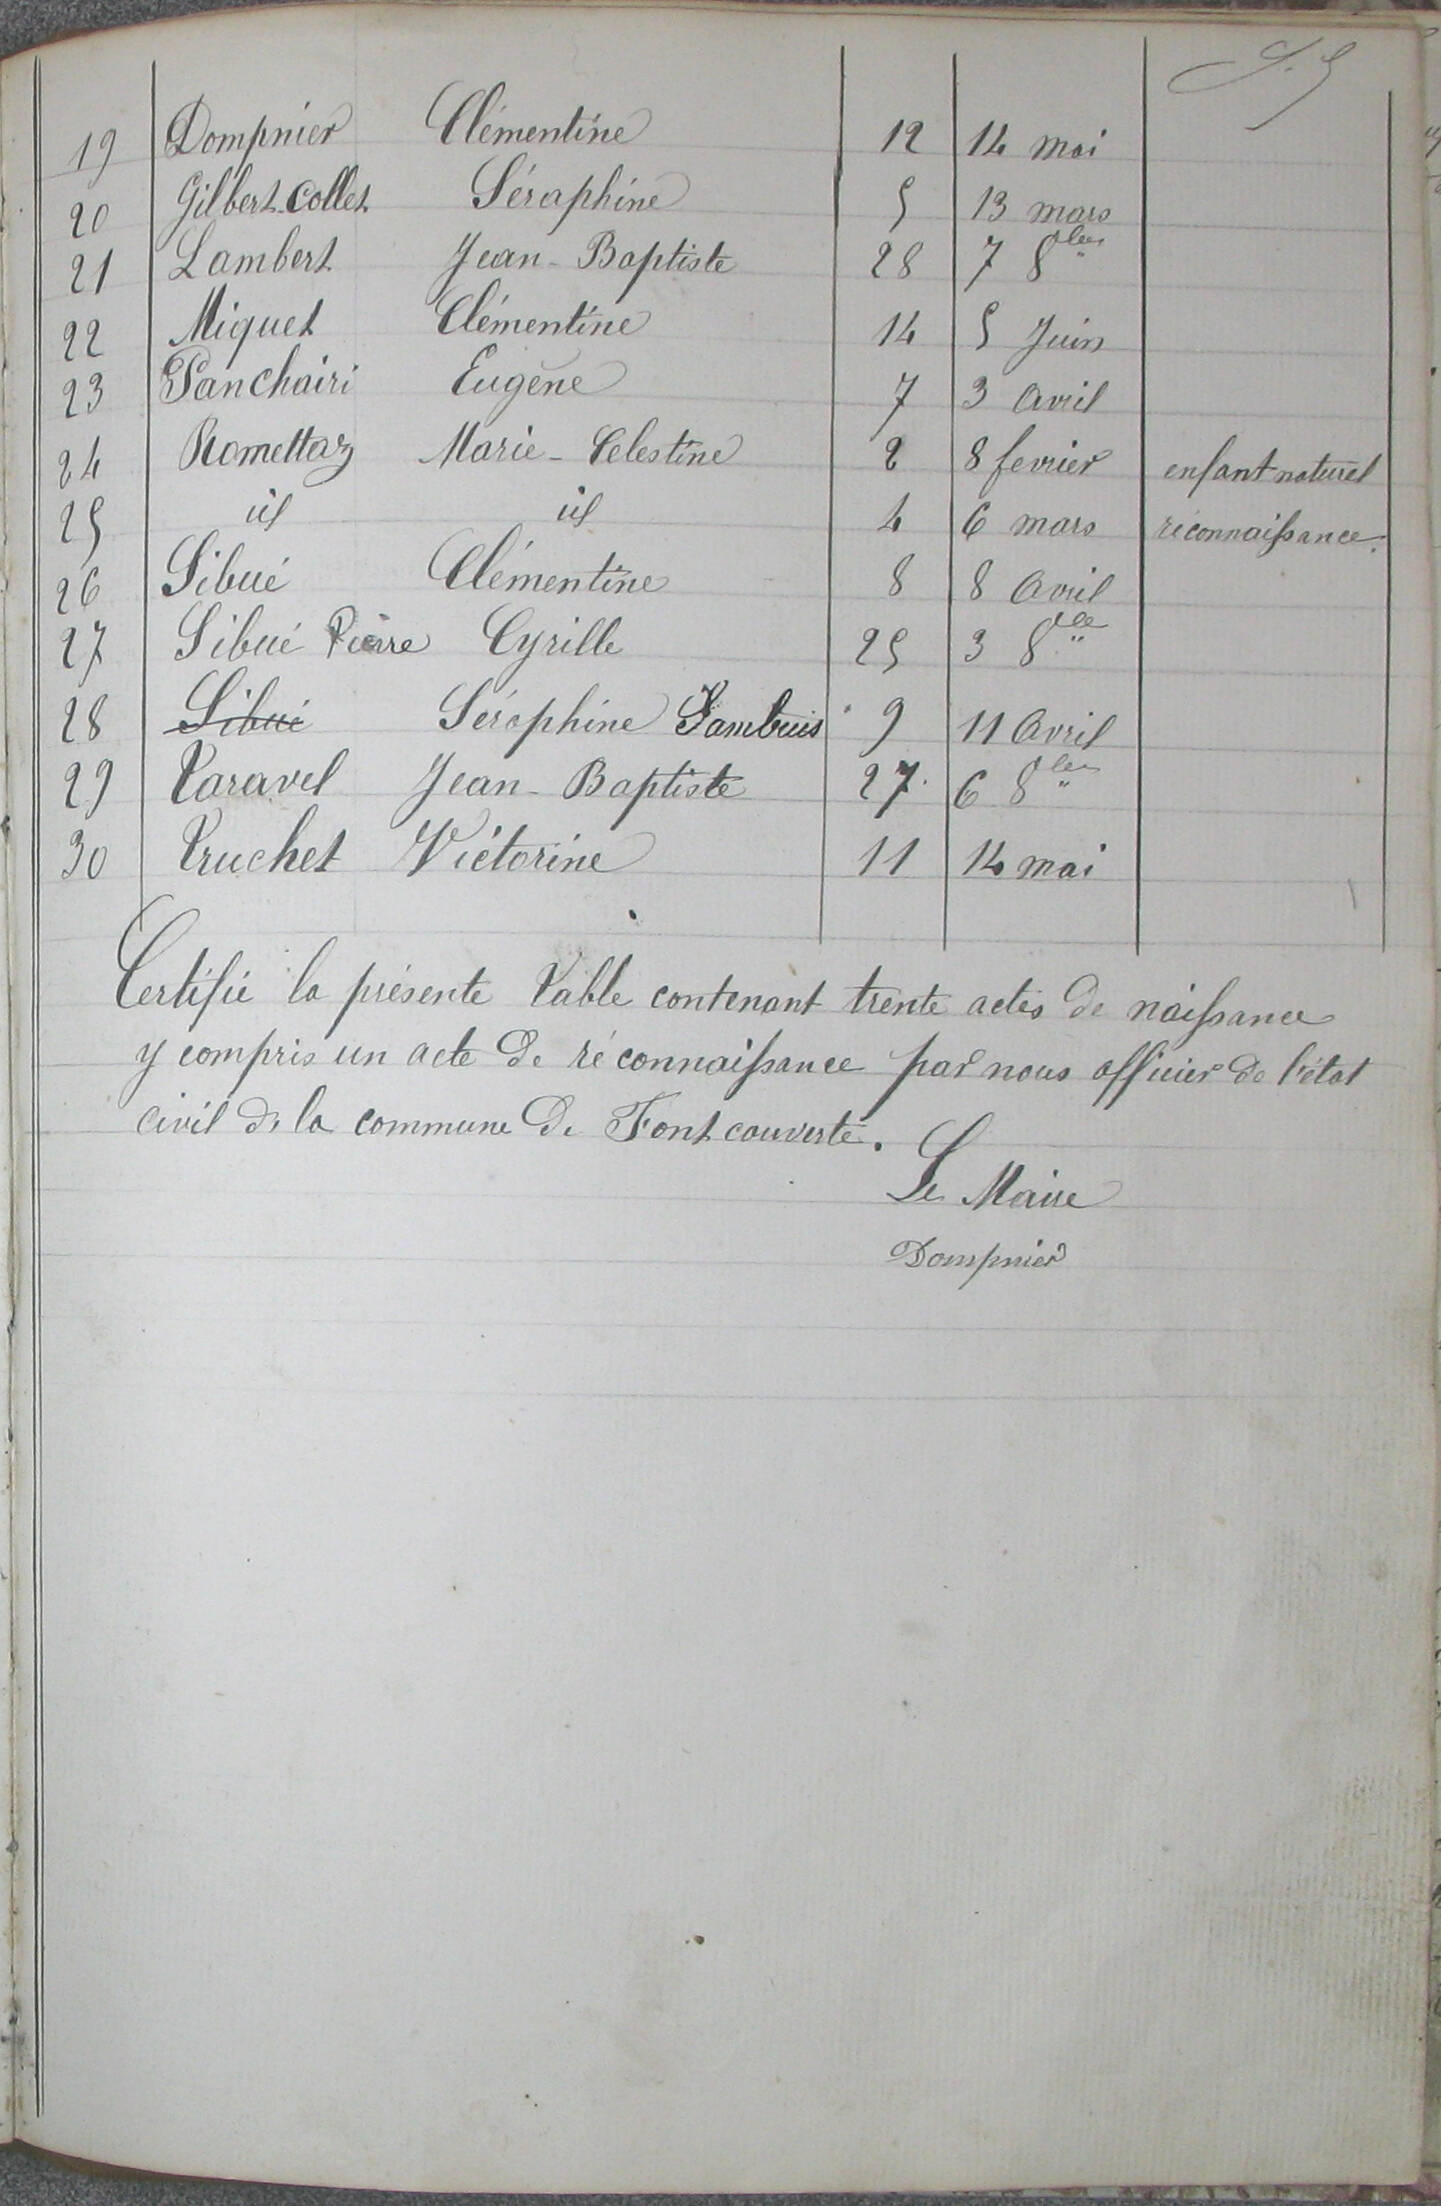 19 Dompnier Clémentine 12 14 mai
20 Gilbert-Collet Séraphine 5 13 mars
21 Lambert Jean-Baptiste 28 7 8bre
22 Miquet Clémentine 14 5 Juin
23 Panchairi Eugène 7 3 avril
24 Romettaz Marie-Celestine 2 8 fevrier enfant naturel
25 id id 4 6 mars réconnaissance.
26 Sibué Clémentine 8 8 avril
27 Sibué Pierre Cyrille 25 3 8bre
28 Sibué Séraphine Sambuis 9 11 avril
29 Taravel Jean-Baptiste 27 6 8bre
30 Truchet Victorine 11 14 mai
Certifié la présente Table contenant trente actes de naissance
y compris un acte de réconnaissance par nous officier de l'état
civil de la commune de Fontcouverte.
Le Maire
Dompnier